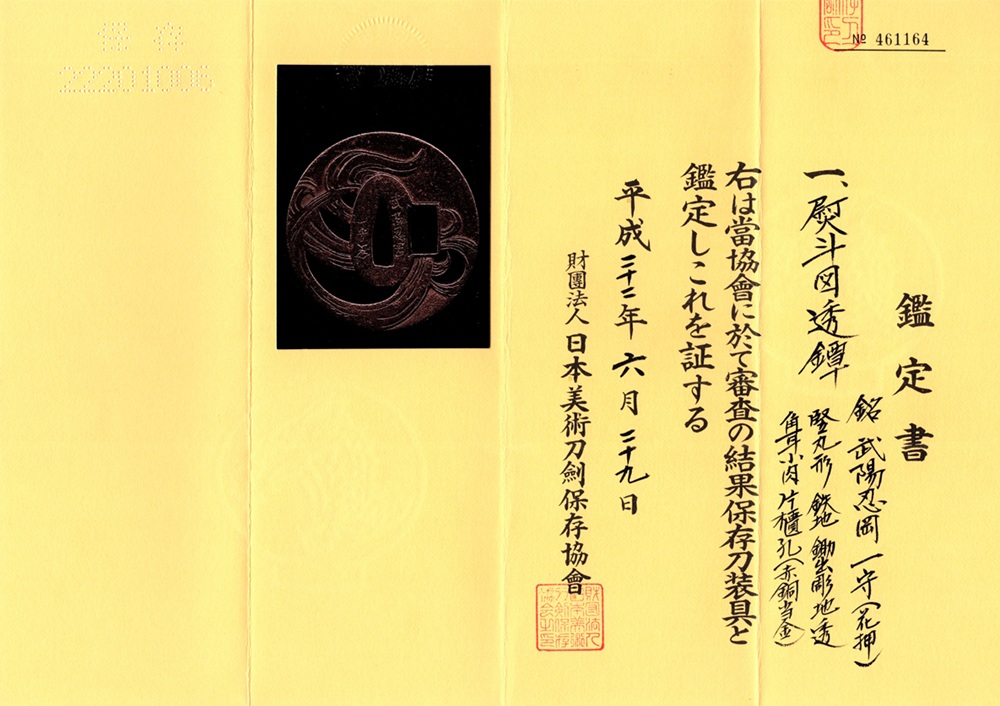 № 461164
鑑定書
一、熨斗図透鐔
銘 武陽忍岡一守（花押）
竪丸形 鉄地 鋤出彫 地透
角耳小肉 片櫃孔（赤銅当金）
右は當協會に於て審査の結果保存刀装具と
鑑定しこれを証する
平成二十二年六月二十九日
財團法人日本美術刀劍保存協會
保存
22201006